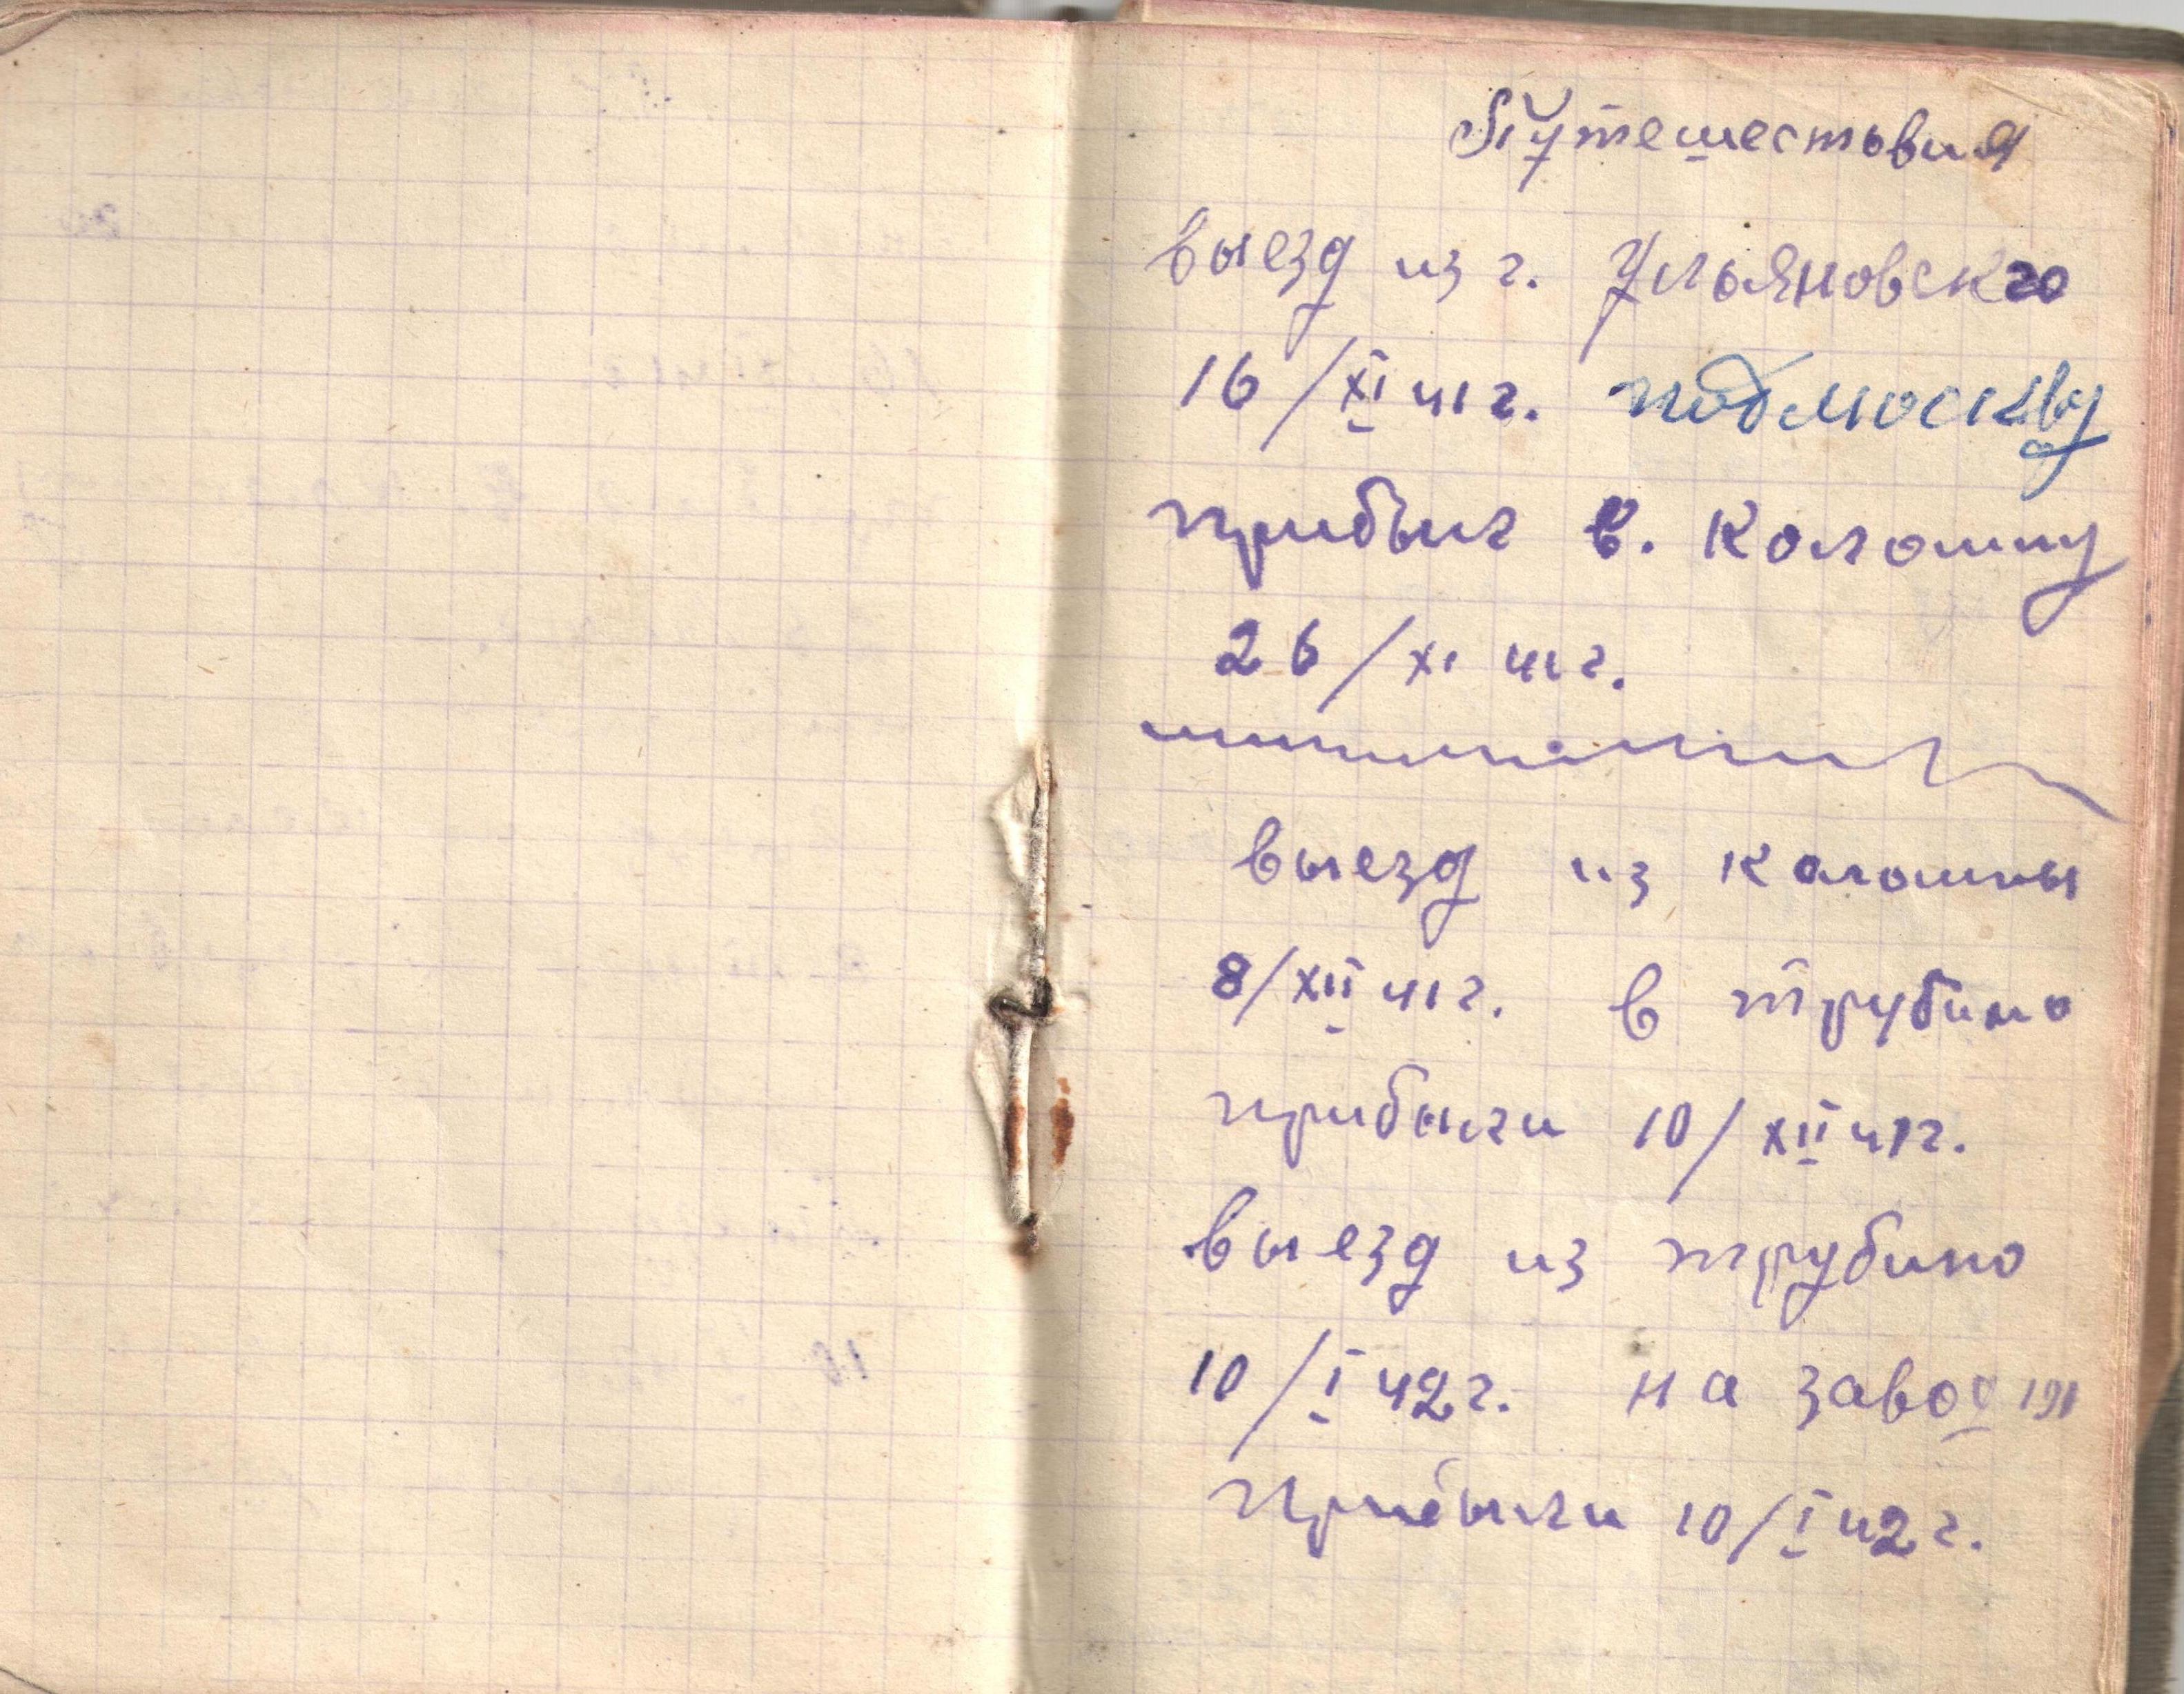 Путешествия
выезд из г. Ульяновского
16/XI 41 г. под москву
прибыл в. Коломну
26/XI 41 г.
выезд из коломны
8/XII 41 г. в трубино
прибыли 10/XII 41 г.
выезд из трубино
10/I 42 г. на завод
прибыли 10/I 42 г.